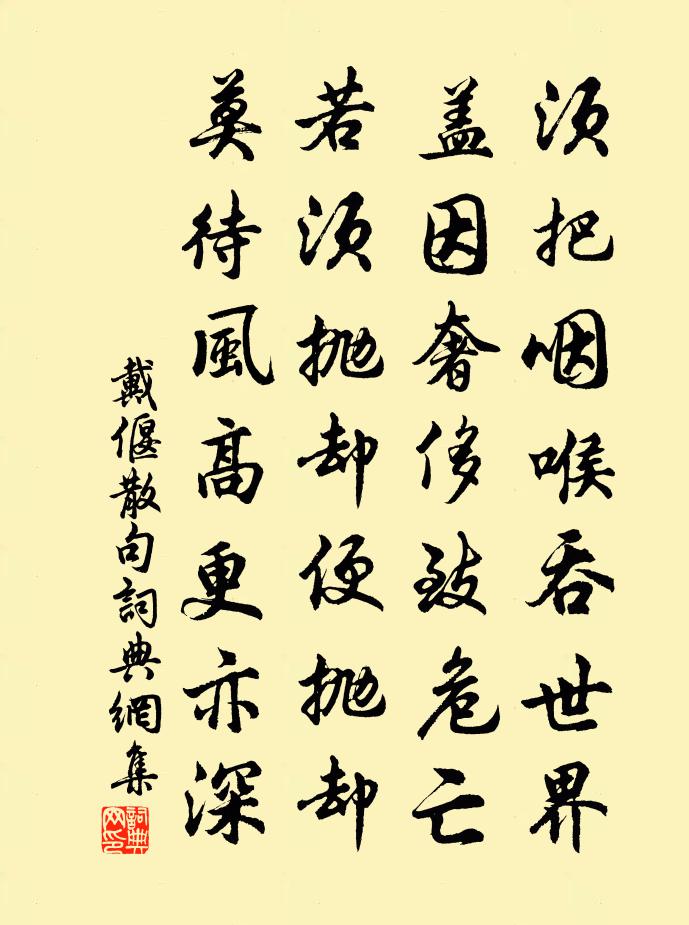 須把咽喉吞世界
盖因奢侈致危亡
若須抛却便抛却
莫待風高更亦深
戴偃散句詞典網集
詞典网印